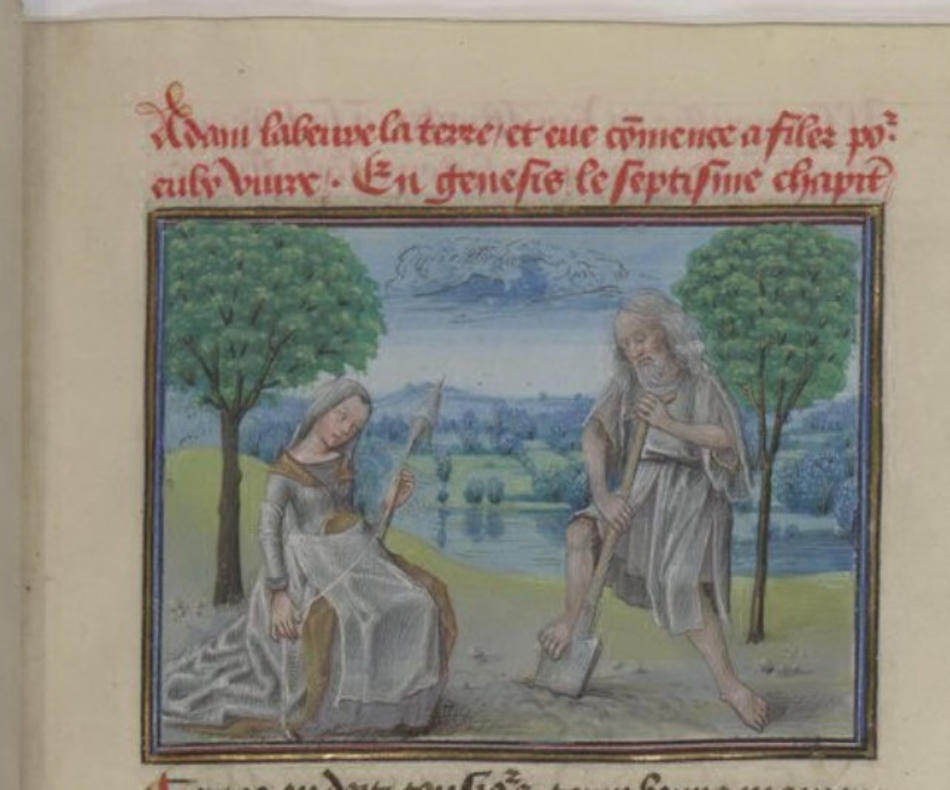 Adam labeure la terre / et eue cõmence a filer poʳ
eulx viure . En genesis le septisme chapit̃